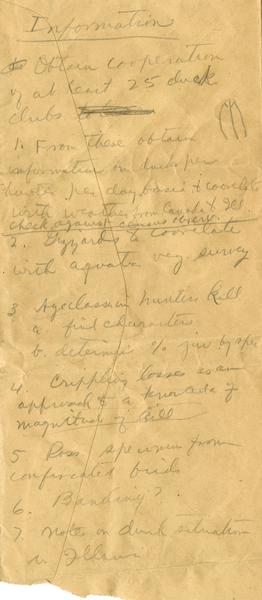 Information
Obtain cooperation
of at least 25 duck
clubs
1. From these obtain
information on ducks per
hunter per day basis & correlate
with weather from Canada & Ill
check against census observ.
2. Gizzards to correlate
with aquatic veg. survey
3 Age classes in hunters kill
a. find characters
b. determine % juv by spec
4. Crippling losses as an
approach to a knowledge of
magnitude of kill
5 Poss. specimen from
confiscated birds
6. Banding?
7. Notes on duck situation
in Illinois